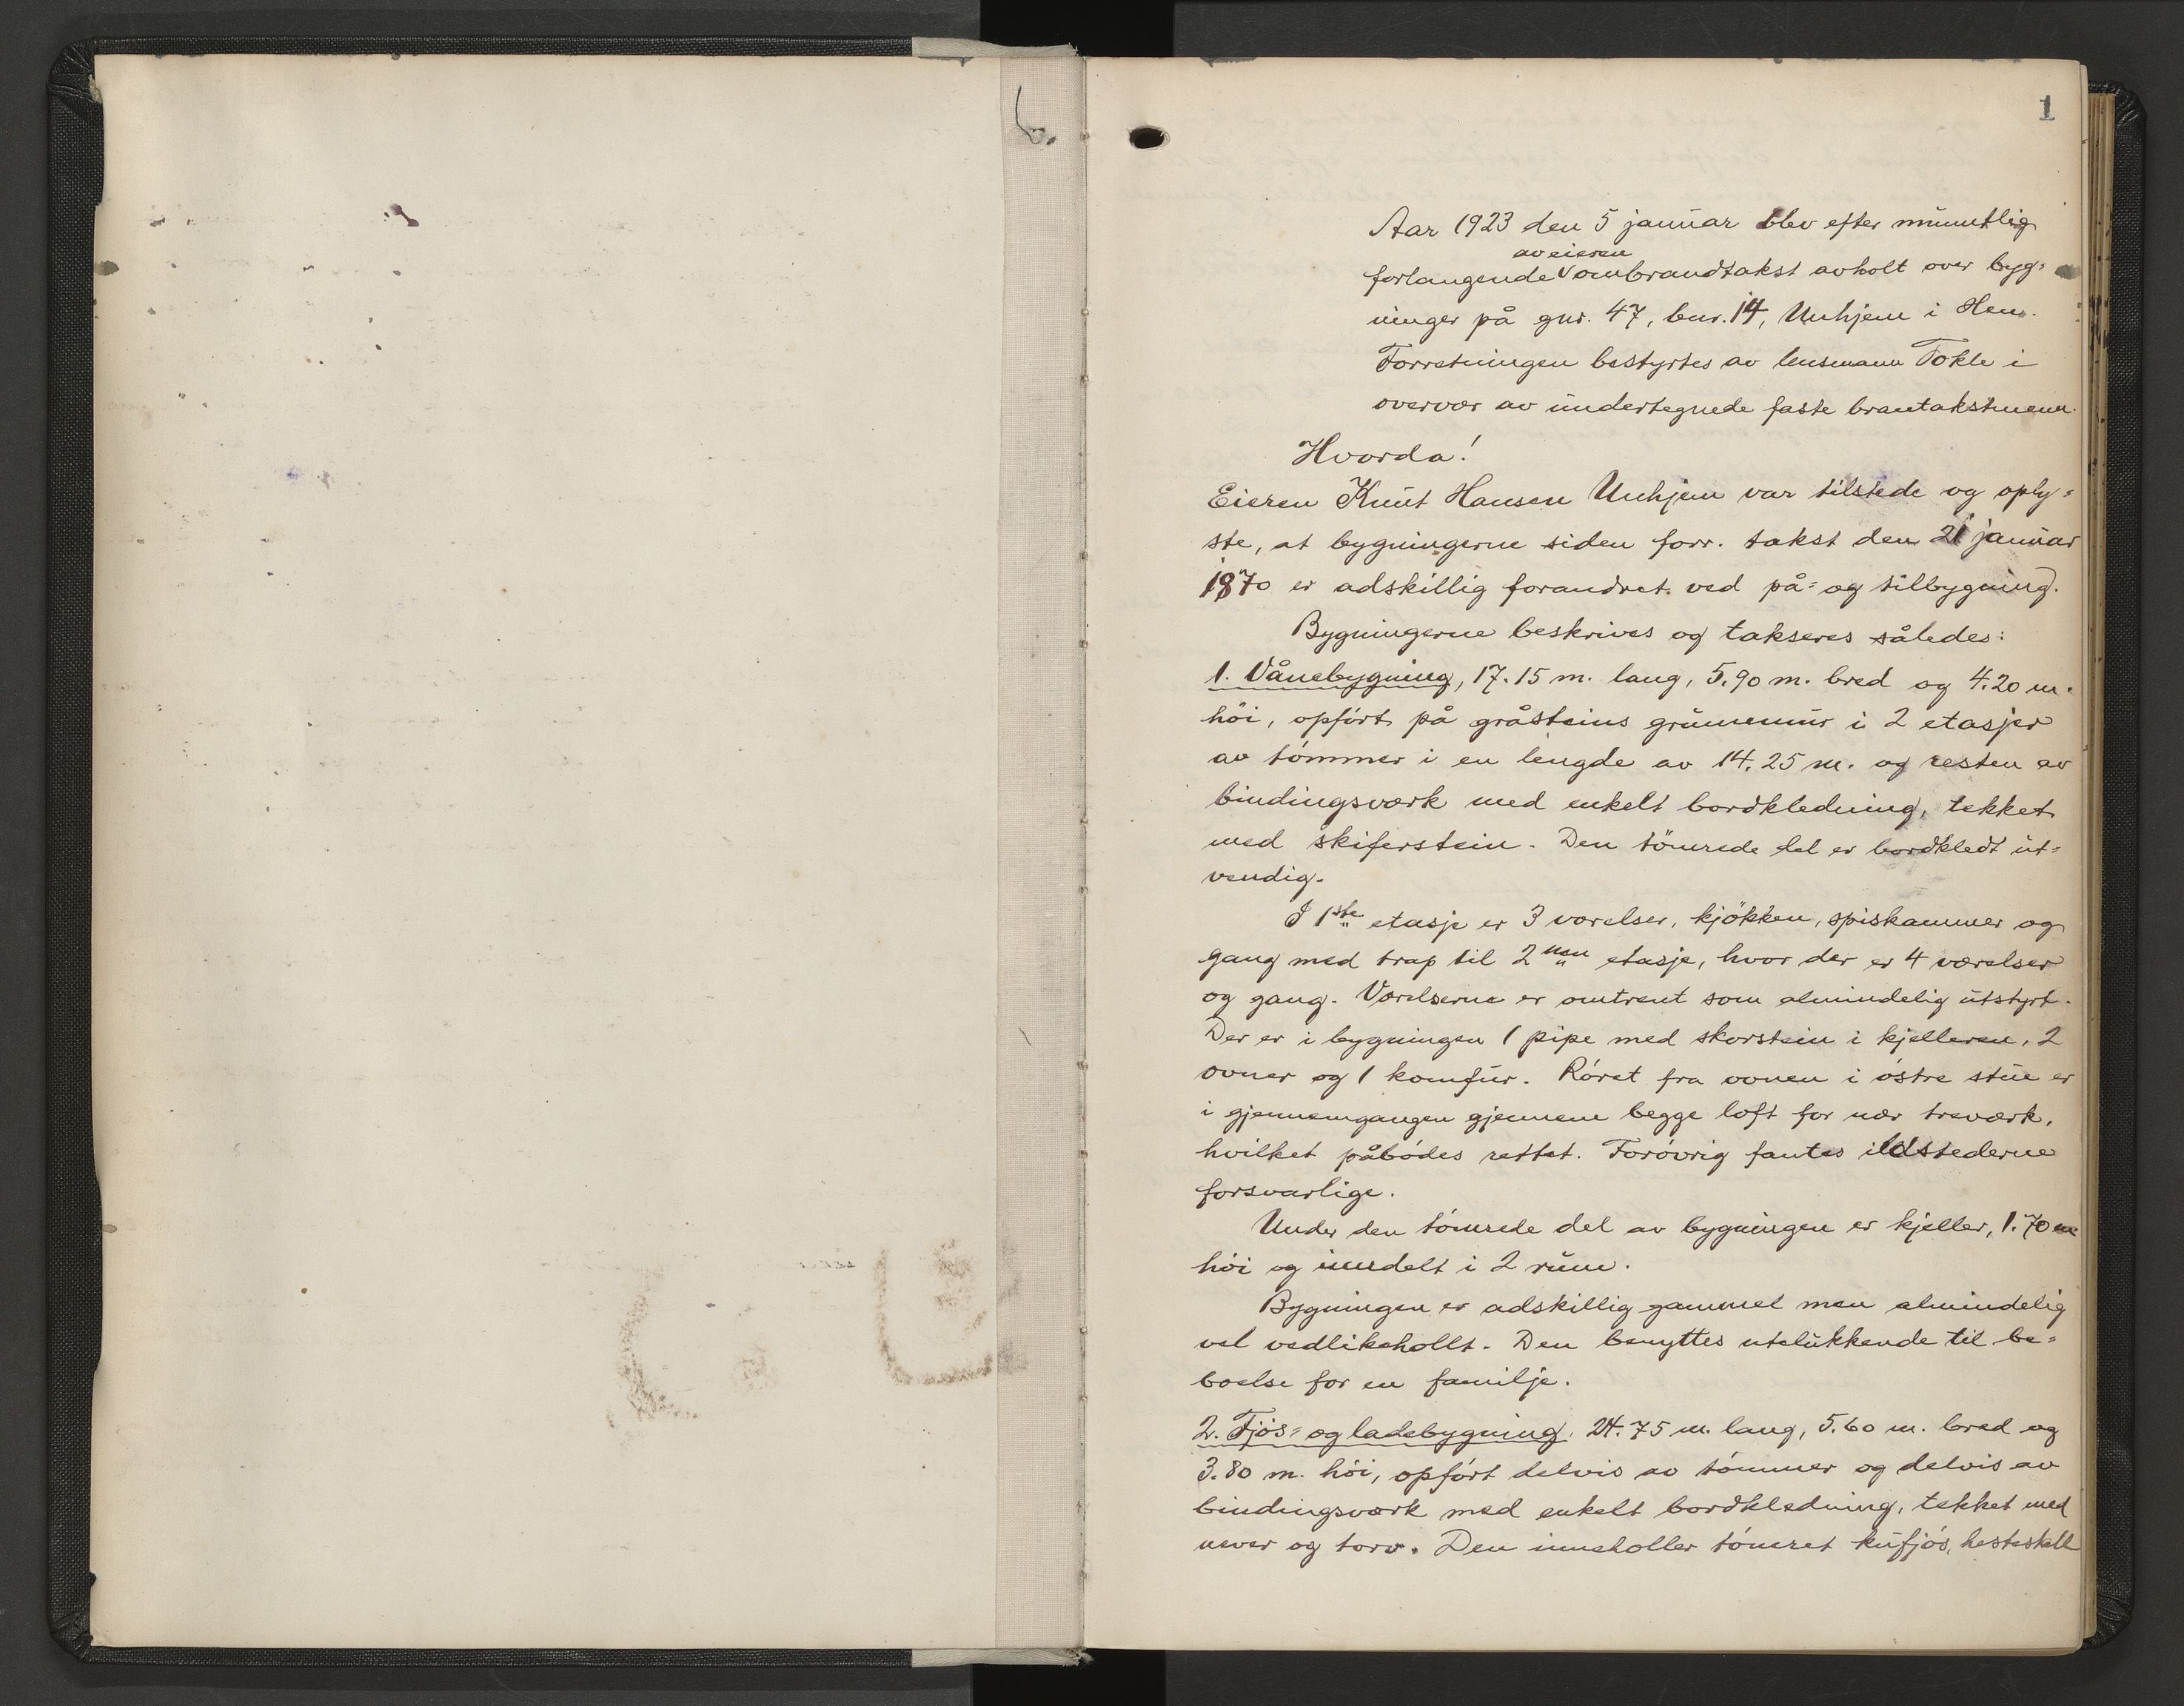 1
Aar 1923 den 5 januar blev efter munntlig
av eieren
forlangende ombrandtakst avholt over byg=
ninger på gnr. 47, bnr. 14, Unhjem i Hen.
Forretningen bestyrtes av lensmann Tokle i
overvær av undertegnede faste branntakstmenn.
Hvorda!
Eieren Knut Hansen Unhjem var tilstede og oply=
ste, at bygningerne siden forr. takst den 21 januar
1870 er adskillig forandret ved på= og tilbygning.
Bygningerne beskrives og takseres således:
1. Vånebygning, 17.15 m. lang, 5.90 m. bred og 4.20 m.
höi, opfört på gråsteins grunnmur i 2 etasjer
av tömmer i en lengde av 14.25 m. og resten av
bindingsværk med enkelt bordkledning, tekket
med skiferstein. Den tömrede del er bordkledt ut=
vendig.
I 1ste etasje er 3 værelser, kjökken, spiskammer og
gang med trap til 2nen etasje, hvor der er 4 værelser
og gang. Værelserne er omtrent som almindelig utstyrt.
Der er i bygningen 1 pipe med skorstein i kjelleren, 2
ovner og 1 komfur. Röret fra ovnen i östre stue er
i gjennemgangen gjennem begge loft for nær treværk,
hvilket påbödes rettet. Foröverig fantes ildstederne
forsvarlige.
Under den tömrede del av bygningen er kjeller, 1.70 m
höi og inndelt i 2 rum.
Bygningen er adskillig gammel men almindelig
vel vedlikehollt. Den benyttes utelukkende til be=
boelse for en familje.
2. Fjös= og ladebygning, 24.75 m. lang, 5.60 m. bred og
3.80 m. höi, opfört delvis av tömmer og delvis av
bindingsværk med enkelt bordkledning, tekket med
never og torv. Den inneholler tömret kufjös, hestestall